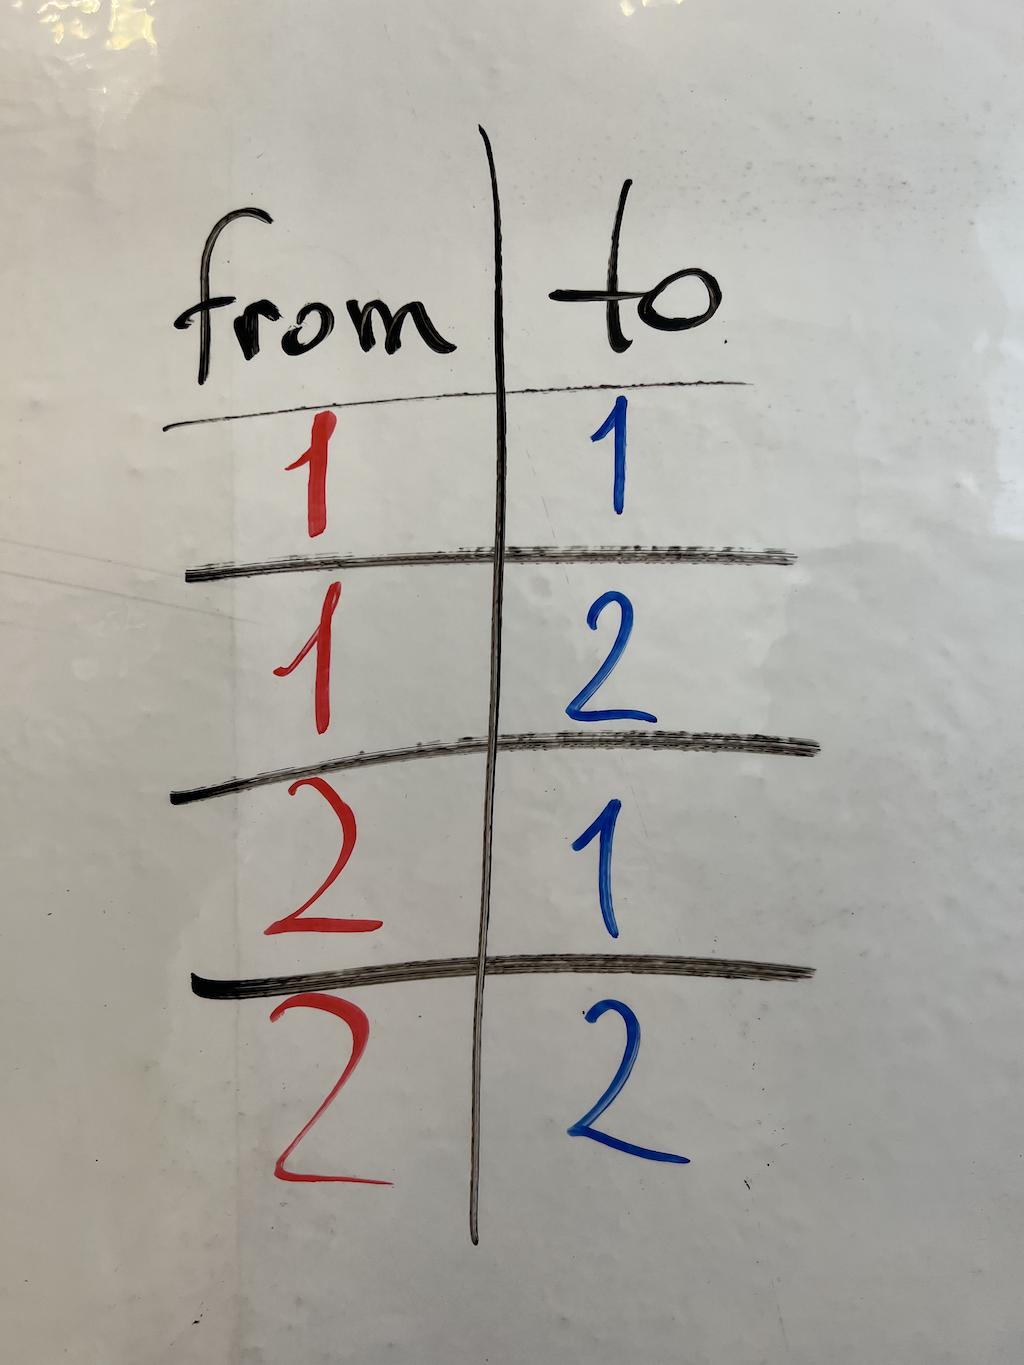 from to
1 1
1 2
2 1
2 2